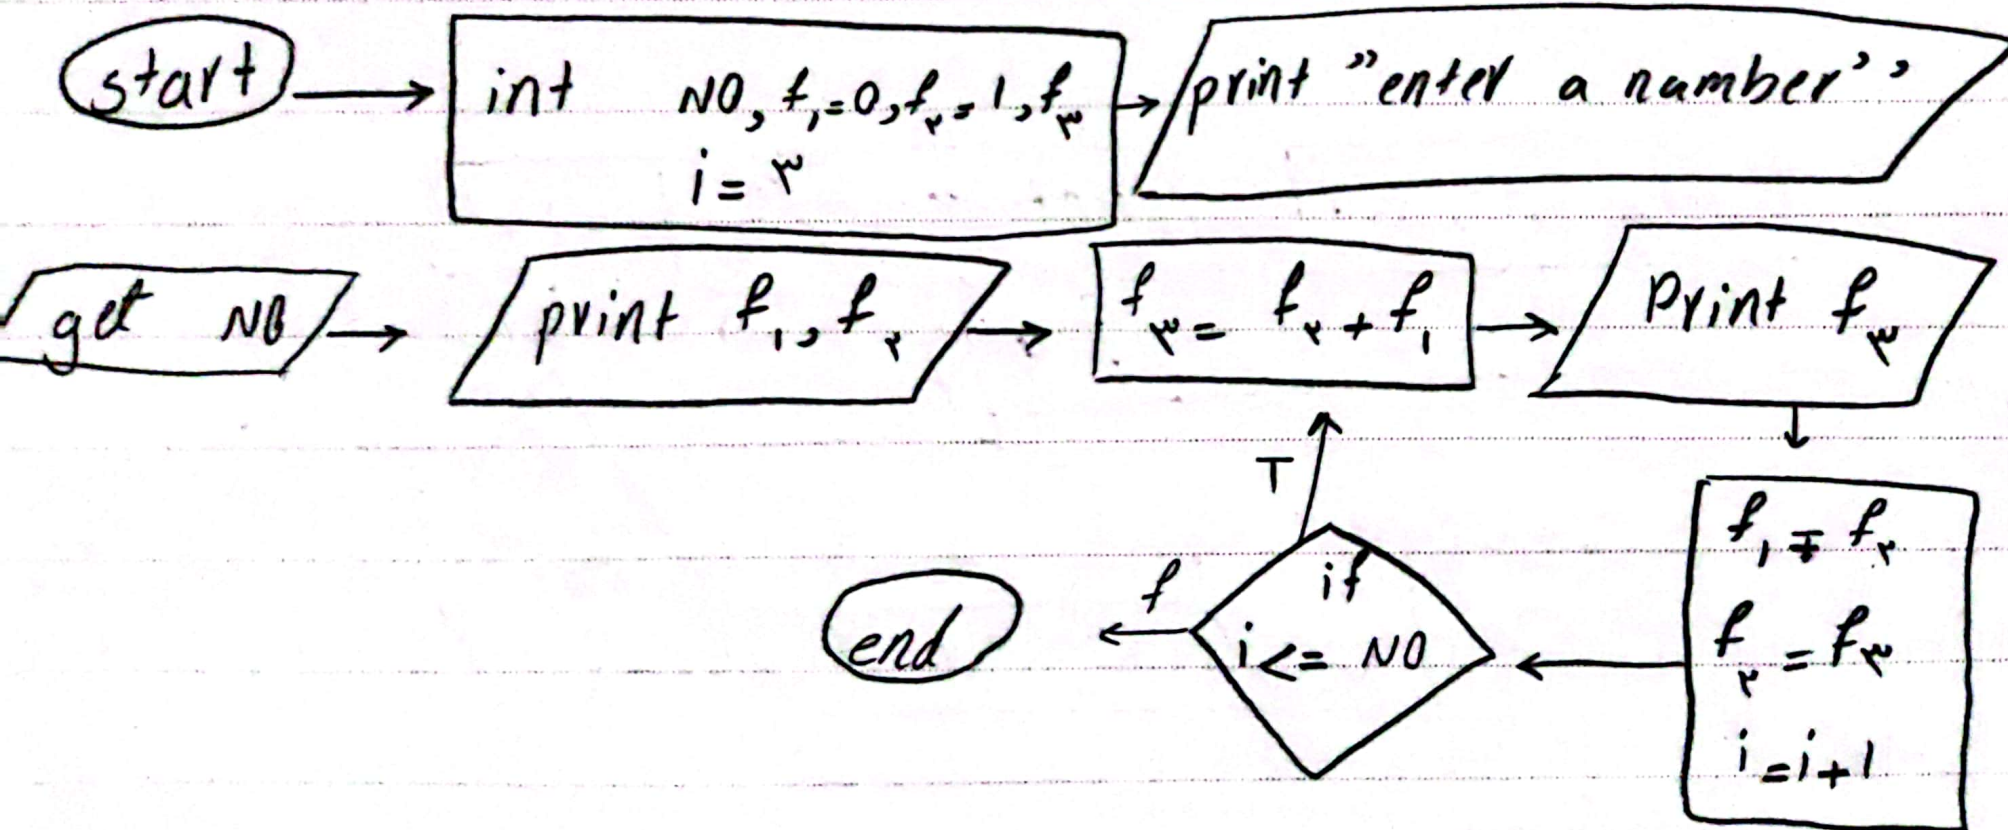 start
int NO, f₁=0, f۲=1, f۳
i = ۳
print "enter a number"
get NO
print f₁, f۲
f۳ = f۲ + f₁
Print f۳
f₁ = f۲
f۲ = f۳
i = i + 1
if
i <= NO
T
f
end